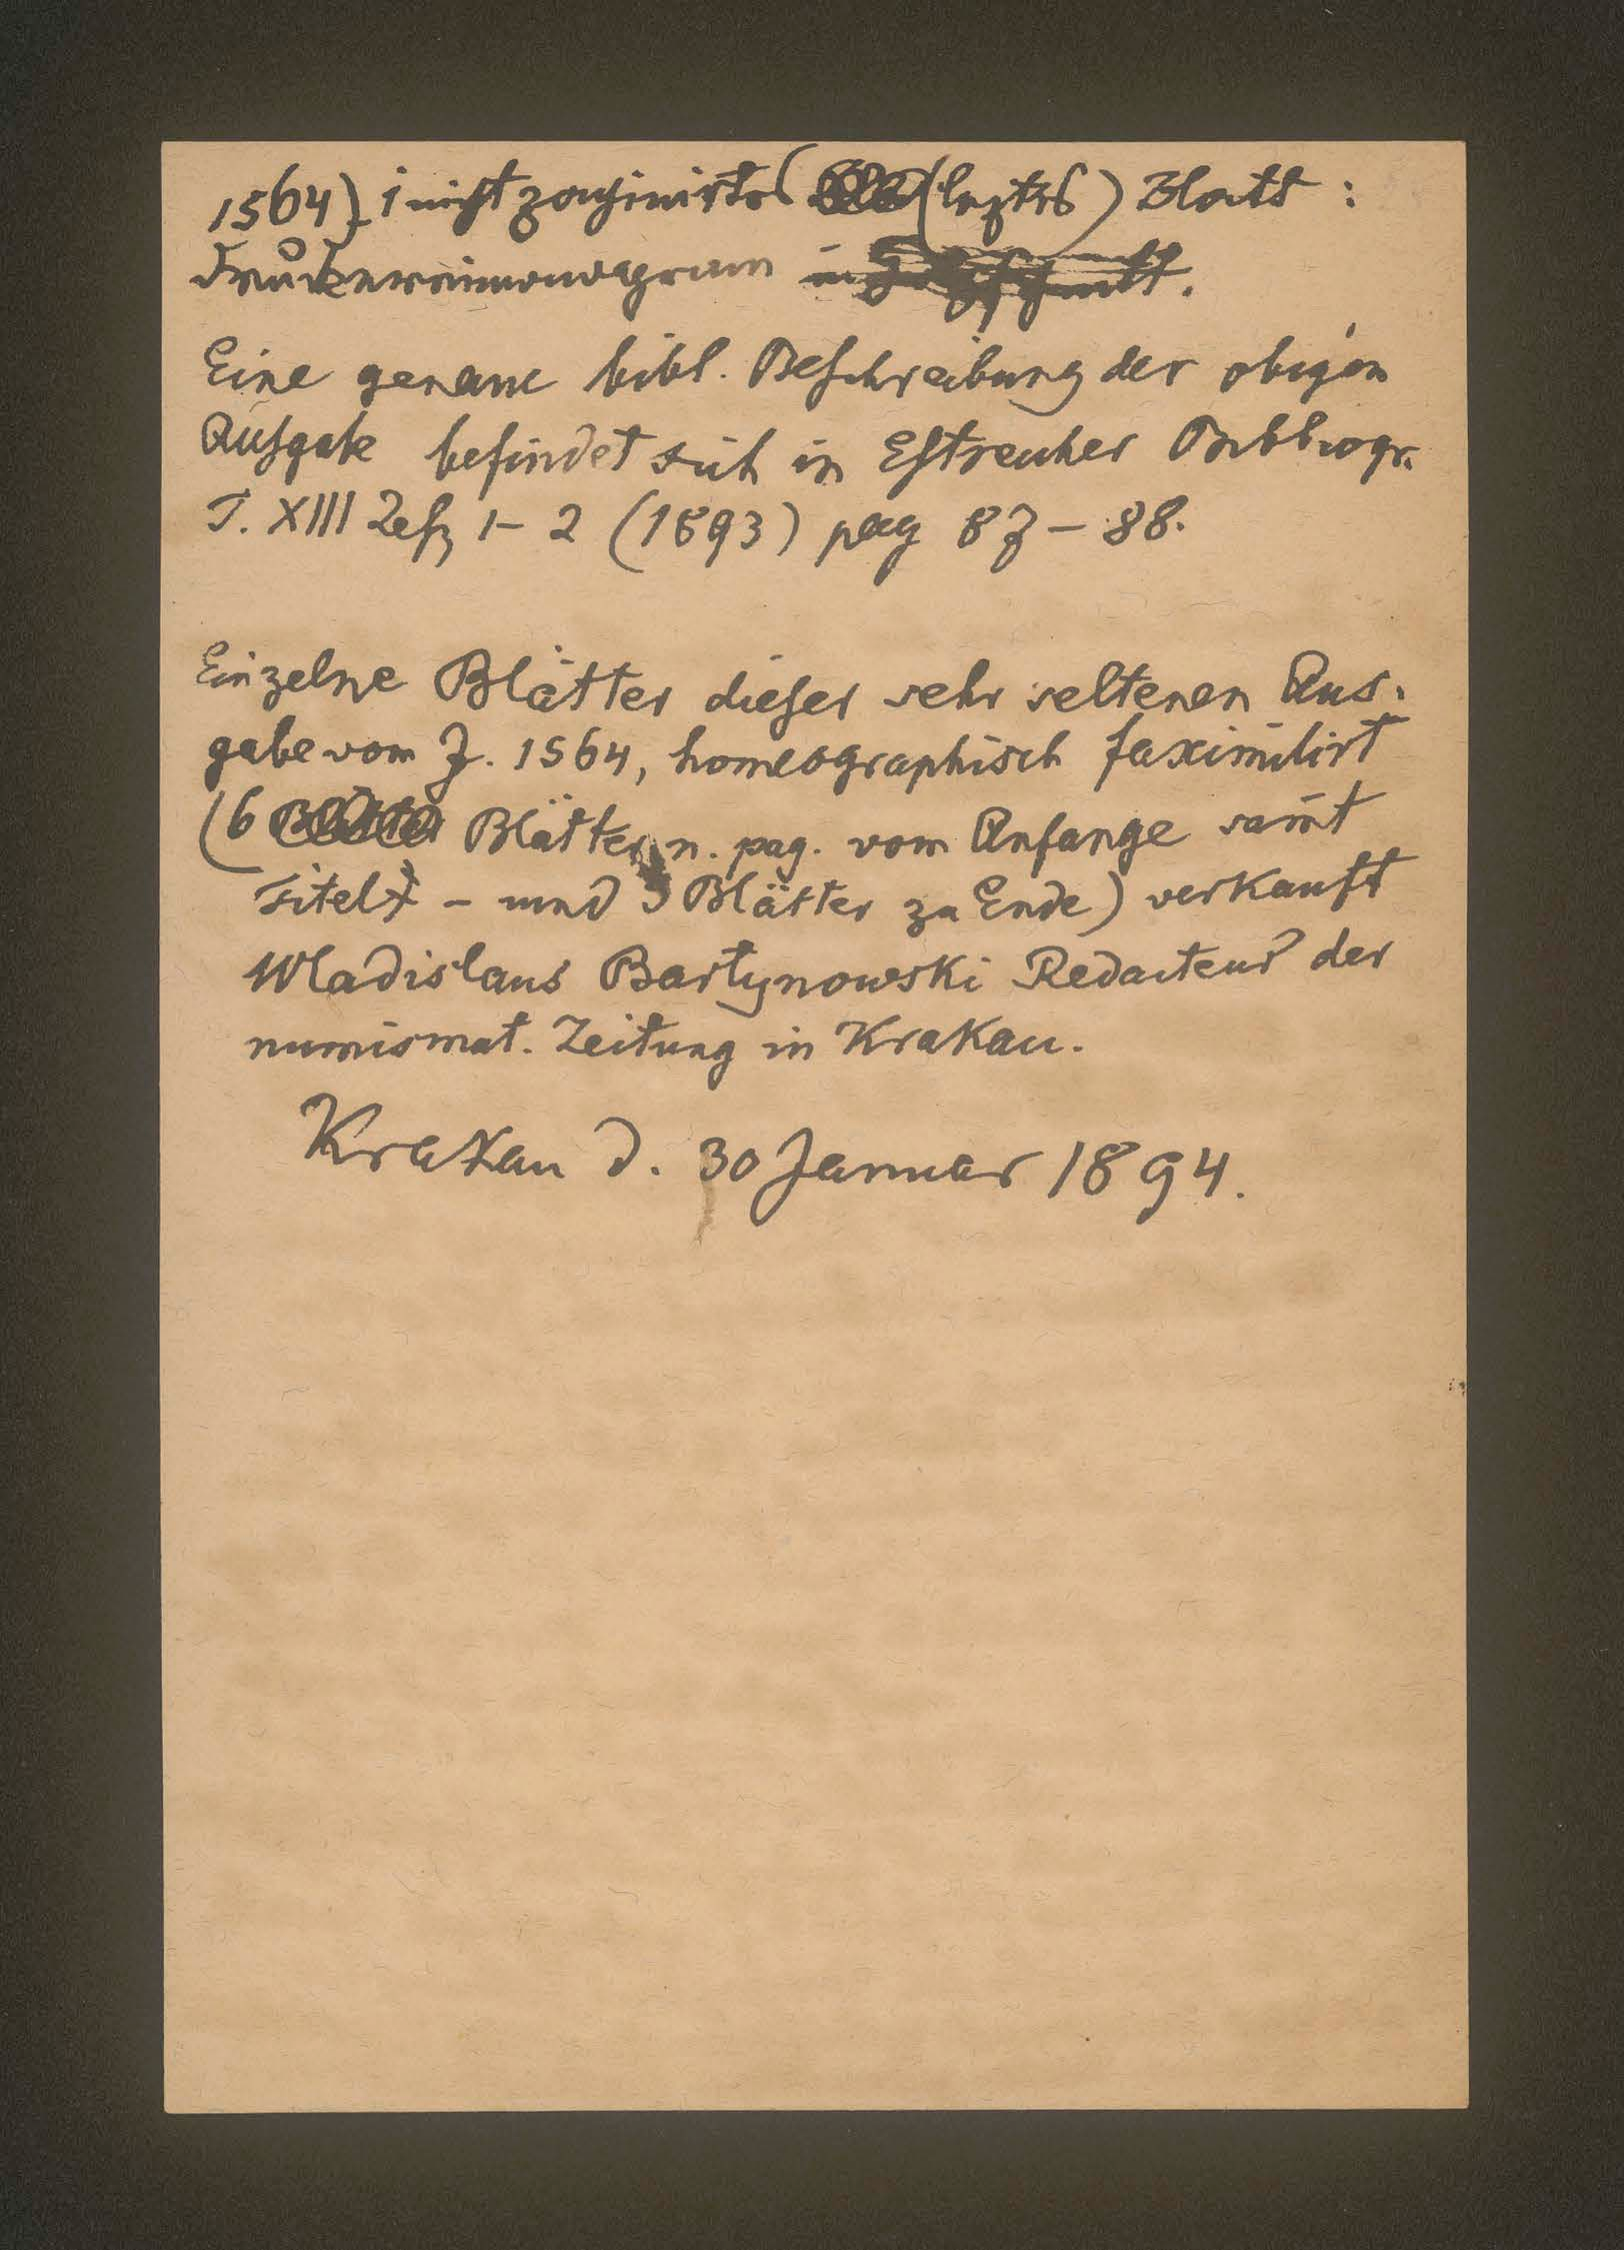 1564) 1 nicht paginirtes (letztes) Blatt :
Druckereimonogram in Holzschnitt.
Eine genaue bibl. Beschreibung der obigen
Ausgabe befindet sich in Estreicher Bibliogr.
T. XIII Zesz 1-2 (1893) pag 87 - 88.
Einzelne Blätter dieser sehr seltenen Aus-
gabe vom J. 1564, homeographisch faximilirt
(6 Blätter n. pag. vom Anfange samt
Titel) - und 3 Blätter zu Ende) verkauft
Wladislaus Bartynowski Redacteur der
numismat. Zeitung in Krakau.
Krakau d. 30 Januar 1894.